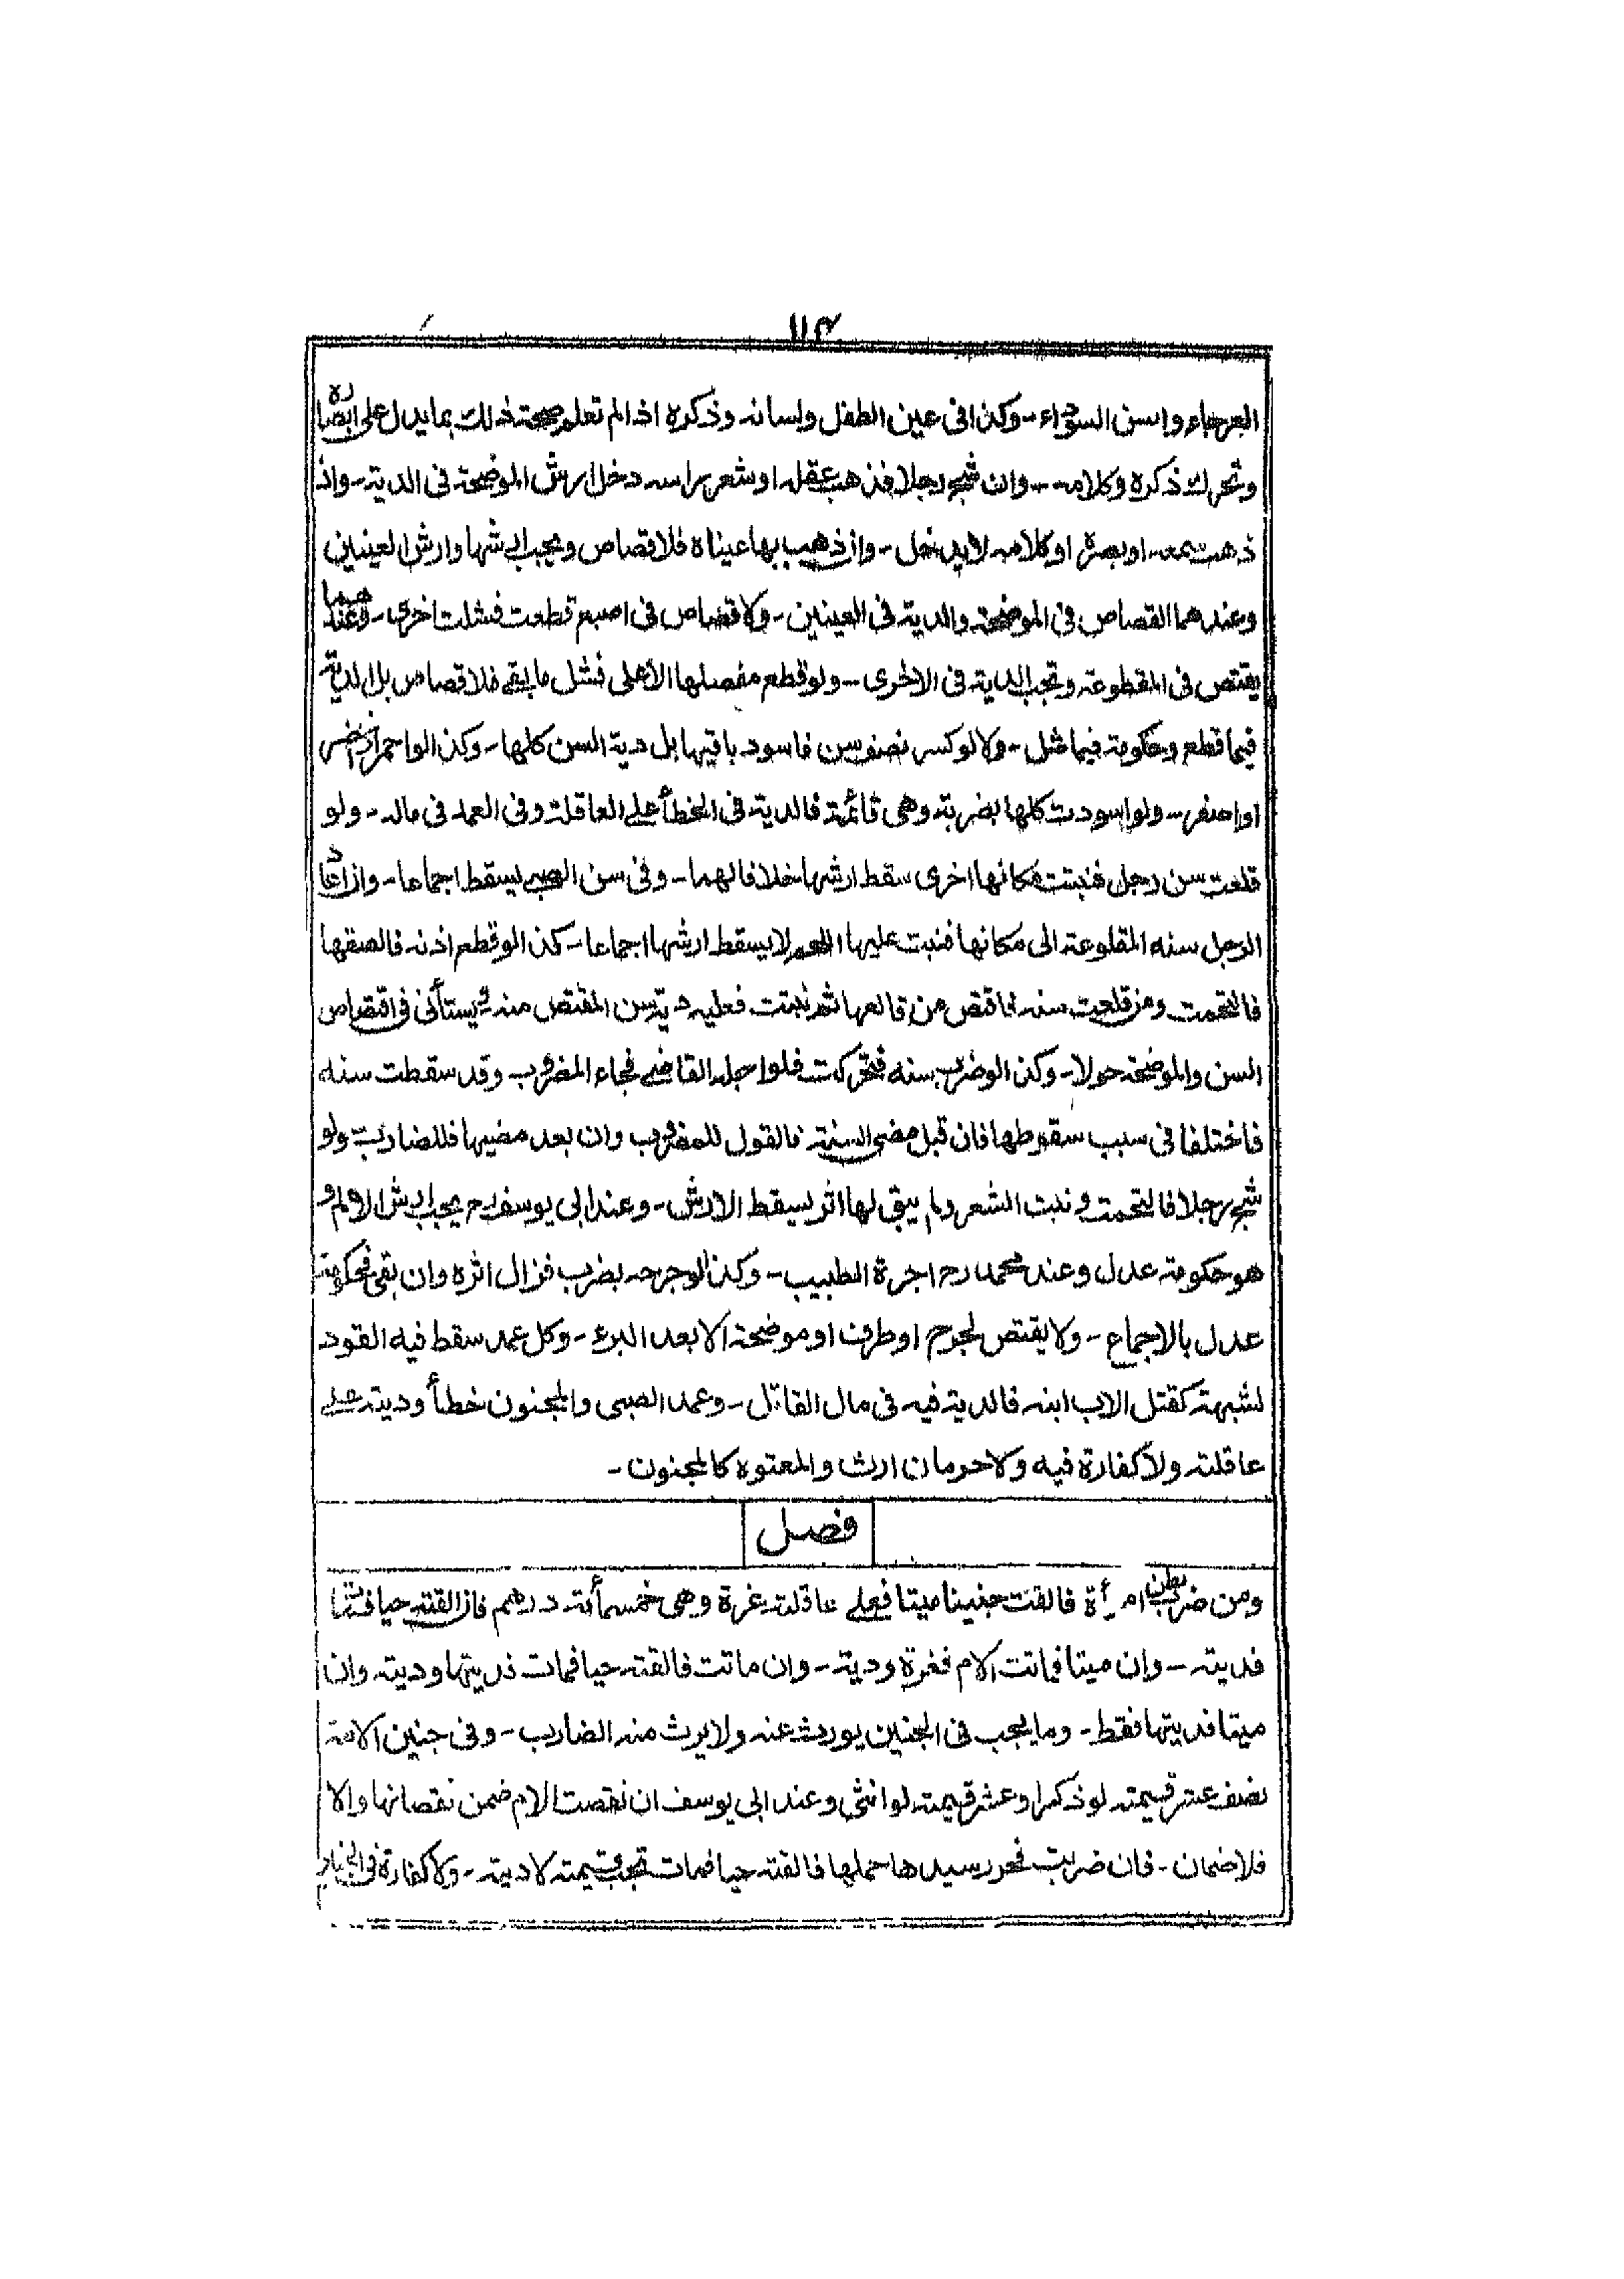 ١١٤
العرجاء والسن السوداء - وكذا فى عين الطفل ولسانه وذكره اذا لم تعلم صحة ذلك بما يدل على ابصاره
وتحرك ذكره وكلامه -- وان شج رجلا فذهب عقله او شعر راسه دخل ارش الموضحة فى الدية - وان
ذهب سمعه او بصره او كلامه لا يدخل - وان ذهب بها عيناه فلا قصاص ويجب ارشها وارش العينين
وعندهما القصاص فى الموضحة والدية فى العينين - ولا قصاص فى اصبع قطعت فشلت اخرى - وعندهما
يقتص فى المقطوعة وتجب الدية فى الاخرى - ولو قطع مفصلها الاعلى فشل ما بقى فلا قصاص بل الدية
فيما قطع وحكومة فيما شل - ولا لو كسر نصف سن فاسود باقيها بل دية السن كلها - وكذا لو احمر او اخضر
او اصفر - ولو اسودت كلها بضربة وهى قائمة فالدية فى الخطأ على العاقلة وفى العمد فى ماله - ولو
قلعت سن رجل فنبتت مكانها اخرى سقط ارشها خلافا لهما - وفى سن الصبى يسقط اجماعا - وان اعاد
الرجل سنه المقلوعة الى مكانها فنبت عليها اللحم لا يسقط ارشها اجماعا - كذا لو قطع اذنه فالصقها
فالتحمت ومن قلعت سنه فاقتص من قالعها ثم نبتت فعليه دية سن المقتص منه ويستأنى فى اقتصاص
السن والموضحة حولا - وكذا لو ضرب سنه فتحركت فلو اجله القاضى فجاء المضروب وقد سقطت سنه
فاختلفا فى سبب سقوطها فان قبل مضى السنة فالقول للمضروب وان بعد مضيها فللضارب ولو
شج رجلا فالتحمت ونبت الشعر ولم يبق لها اثر يسقط الارش - وعند ابى يوسف رح يجب ارش الالم و
هو حكومة عدل وعند محمد رح اجرة الطبيب - وكذا لو جرحه بضرب فزال اثره وان بقى فحكومة
عدل بالاجماع - ولا يقتص لجرح او طرف او موضحة الا بعد البرء - وكل عمد سقط فيه القود
لشبهة كقتل الاب ابنه فالدية فيه فى مال القاتل - وعمد الصبى والمجنون خطأ وديته على
عاقلته ولا كفارة فيه ولا حرمان ارث والمعتوه كالمجنون -
فصل
ومن ضرب بطن امرأة فالقت جنينا ميتا فعلى عاقلته غرة وهى خمسمأئة درهم فان القته حيا فمات
فدية - وان ميتا فماتت الام فغرة ودية - وان ماتت فالقته حيا فمات فديتها وديته وان
ميتا فديتها فقط - وما يجب فى الجنين يورث عنه ولا يرث منه الضارب - وفى جنين الامة
نصف عشر قيمته لو ذكرا وعشر قيمته لو انثى وعند ابى يوسف ان نقصت الام ضمن نقصانها والا
فلا ضمان - فان ضربت فحرر سيدها حملها فالقته حيا فمات تجب قيمته لا ديته - ولا كفارة فى الجنين